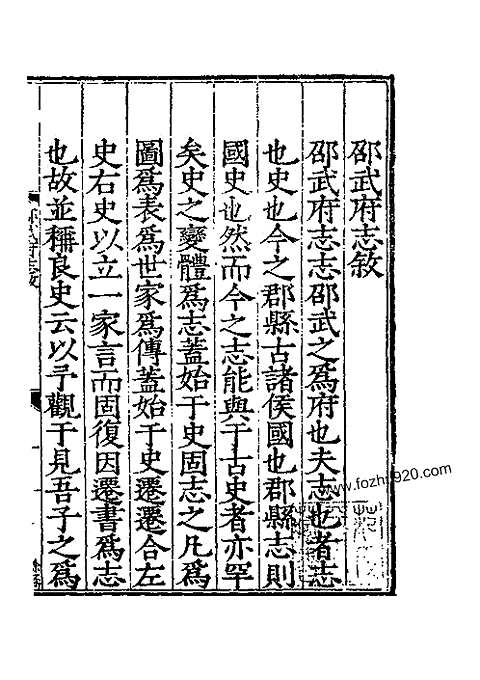 邵武府志敘
邵武府志志邵武之爲府也夫志也者志
也史也今之郡縣古諸侯國也郡縣志則
國史也然而今之志能與于古史者亦罕
矣史之變體爲志蓋始于史固志之凡爲
圖爲表爲世家爲傳蓋始于史遷遷合左
史右史以立一家言而固復因遷書爲志
也故並稱良史云以予觀于見吾子之爲
www.fozhi920.com